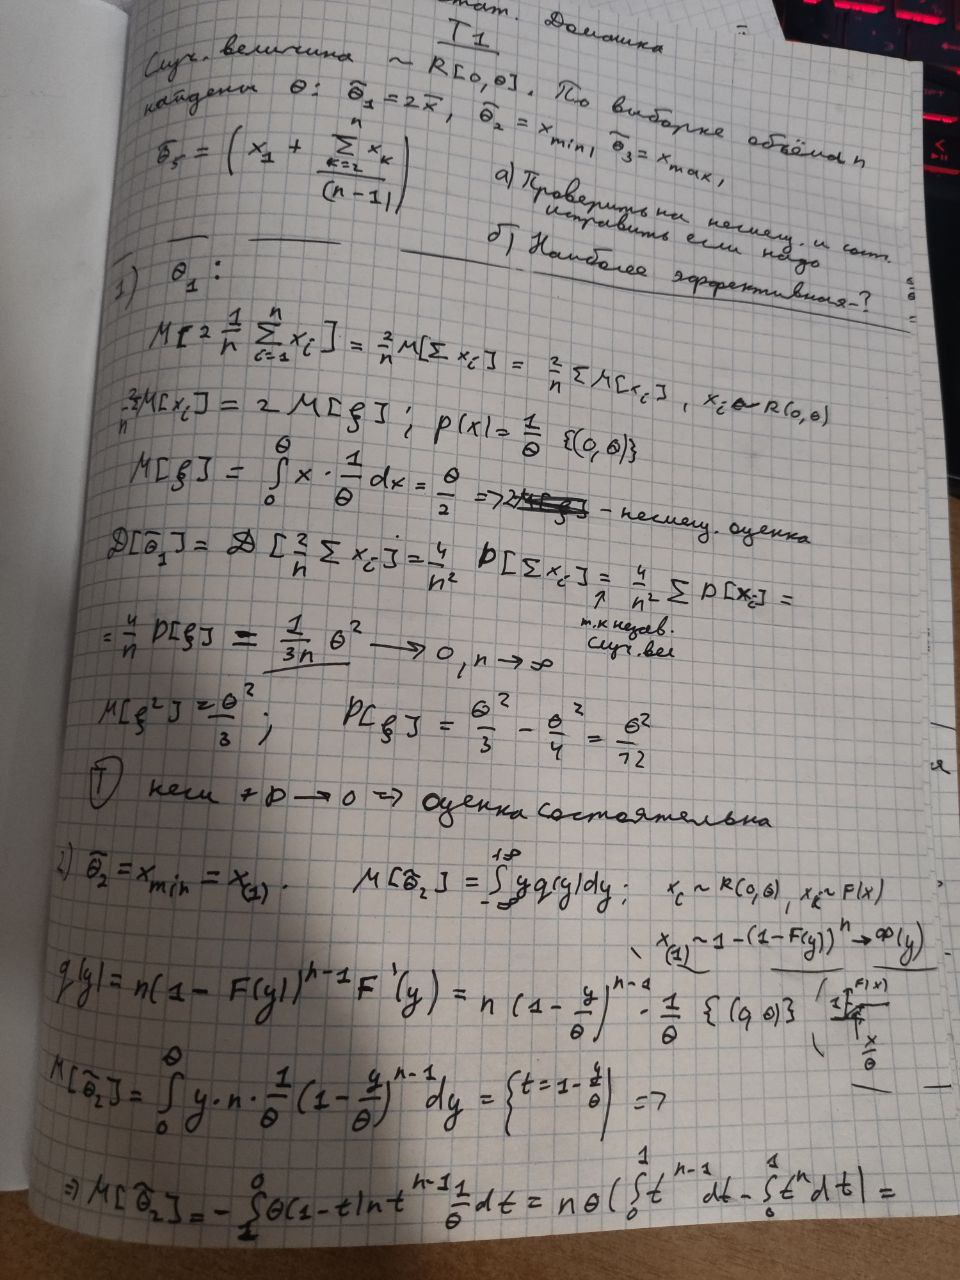 мат. Домашка
T1
Случ. величина ~ R[0,θ]. По выборке объёма n
найдены θ: θ̃₁ = 2x̄, θ̃₂ = x_min, θ̃₃ = x_max,
θ̃₅ = (x₁ + Σ_{k=2}^{n} x_k / (n-1))
а) Проверить на несмещ. и сост. исправить если надо
б) Наиболее эффективная-?
1) θ₁:
M[2 1/n Σ_{i=1}^{n} x_i] = 2/n M[Σ x_i] = 2/n Σ M[x_i], x_i ~ R(0,θ)
M[x_i] = 2 M[ξ]; p(x) = 1/θ {(0,θ)}
M[ξ] = ∫_0^θ x · 1/θ dx = θ/2 => - несмещ. оценка
D[θ̃₁] = D[2/n Σ x_i] = 4/n² D[Σ x_i] = 4/n² Σ D[x_i] =
т.к незав. случ. вел
= 4/n D[ξ] = 1/3n θ² → 0, n → ∞
M[ξ²] = θ²/3; D[ξ] = θ²/3 - θ²/4 = θ²/12
T несм + D → 0 => оценка состоятельна
2) θ̃₂ = x_min = x_(1). M[θ̃₂] = ∫_{-∞}^{+∞} y q(y) dy; x_i ~ R(0,θ), x_k ~ F(x)
x_(1) ~ 1-(1-F(y))^n → Φ(y)
q(y) = n(1-F(y))^{n-1} F'(y) = n (1-y/θ)^{n-1} · 1/θ {(0,θ)}
1 F(x)
x/θ
M[θ̃₂] = ∫_0^θ y·n·1/θ (1-y/θ)^{n-1} dy = {t = 1-y/θ} =>
=> M[θ̃₂] = -∫_1^0 θ(1-t) n t^{n-1} 1/θ dt = nθ(∫_0^1 t^{n-1} dt - ∫_0^1 t^n dt) =